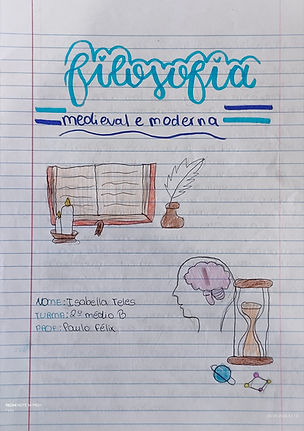 filosofia
medieval e moderna
NOME: Isabella Teles
TURMA: 2º médio B
PROF: Paulo Félix